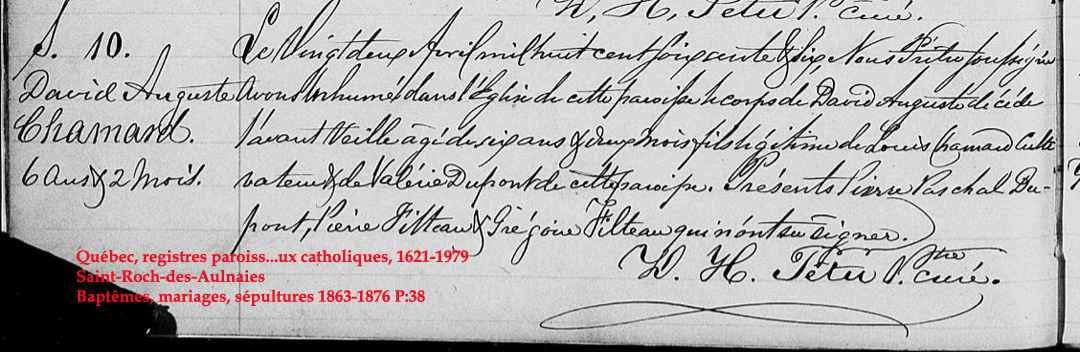 D. H. Têtu P. curé.
S. 10.
David Auguste
Chamard.
6 ans & 2 mois.
Le Vingt deux Avril mil huit cent soixante & six, Nous Prêtre soussigné
Avons inhumé dans l'Église de cette paroisse le corps de David Auguste décédé
l'avant Veille âgé de six ans & deux mois fils légitime de Louis Chamard Culti-
vateur & de Valérie Dupont de cette paroisse. Présents Pierre Paschal Du-
pont, Pierre Filteau & Grégoire Filteau qui n'ont su signer.
D. H. Têtu Ptre curé.
Québec, registres paroiss...ux catholiques, 1621-1979
Saint-Roch-des-Aulnaies
Baptêmes, mariages, sépultures 1863-1876 P:38